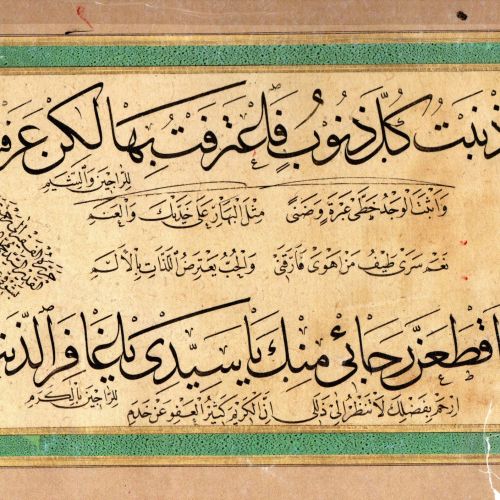 ذنبت كلّ ذنوب فاعترفت بها لكن عرف
للراجين والشيم
واثبت الوجد خطى عبرة وضنى مثل البهار على خديك والعنم
نعم سرى طيف من اهوى فارقنى والحب يعترض اللذات بالالم
قطعنّ رجائي منك يا سيدى يا غافر الذن
للراجين بالكرم
ارحم بفضلك لا تنظر الى ذللى ان الكريم كثير العفو عن خدم